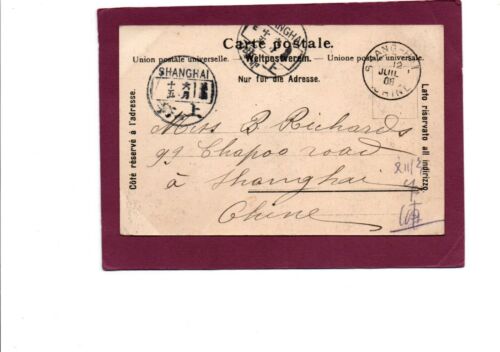 Carte postale.
Union postale universelle. — Weltpostverein. — Unione postale universale.
Nur für die Adresse.
Côté réservé à l'adresse.
Lato riservato all indirizzo.
SHANGHAI
十六
五月
上
SHANGHAI
上
SHANG-HAI
12
JUIL
08
CHINE
Miss B Richards
99 Chapoo road
à Shanghai
Chine